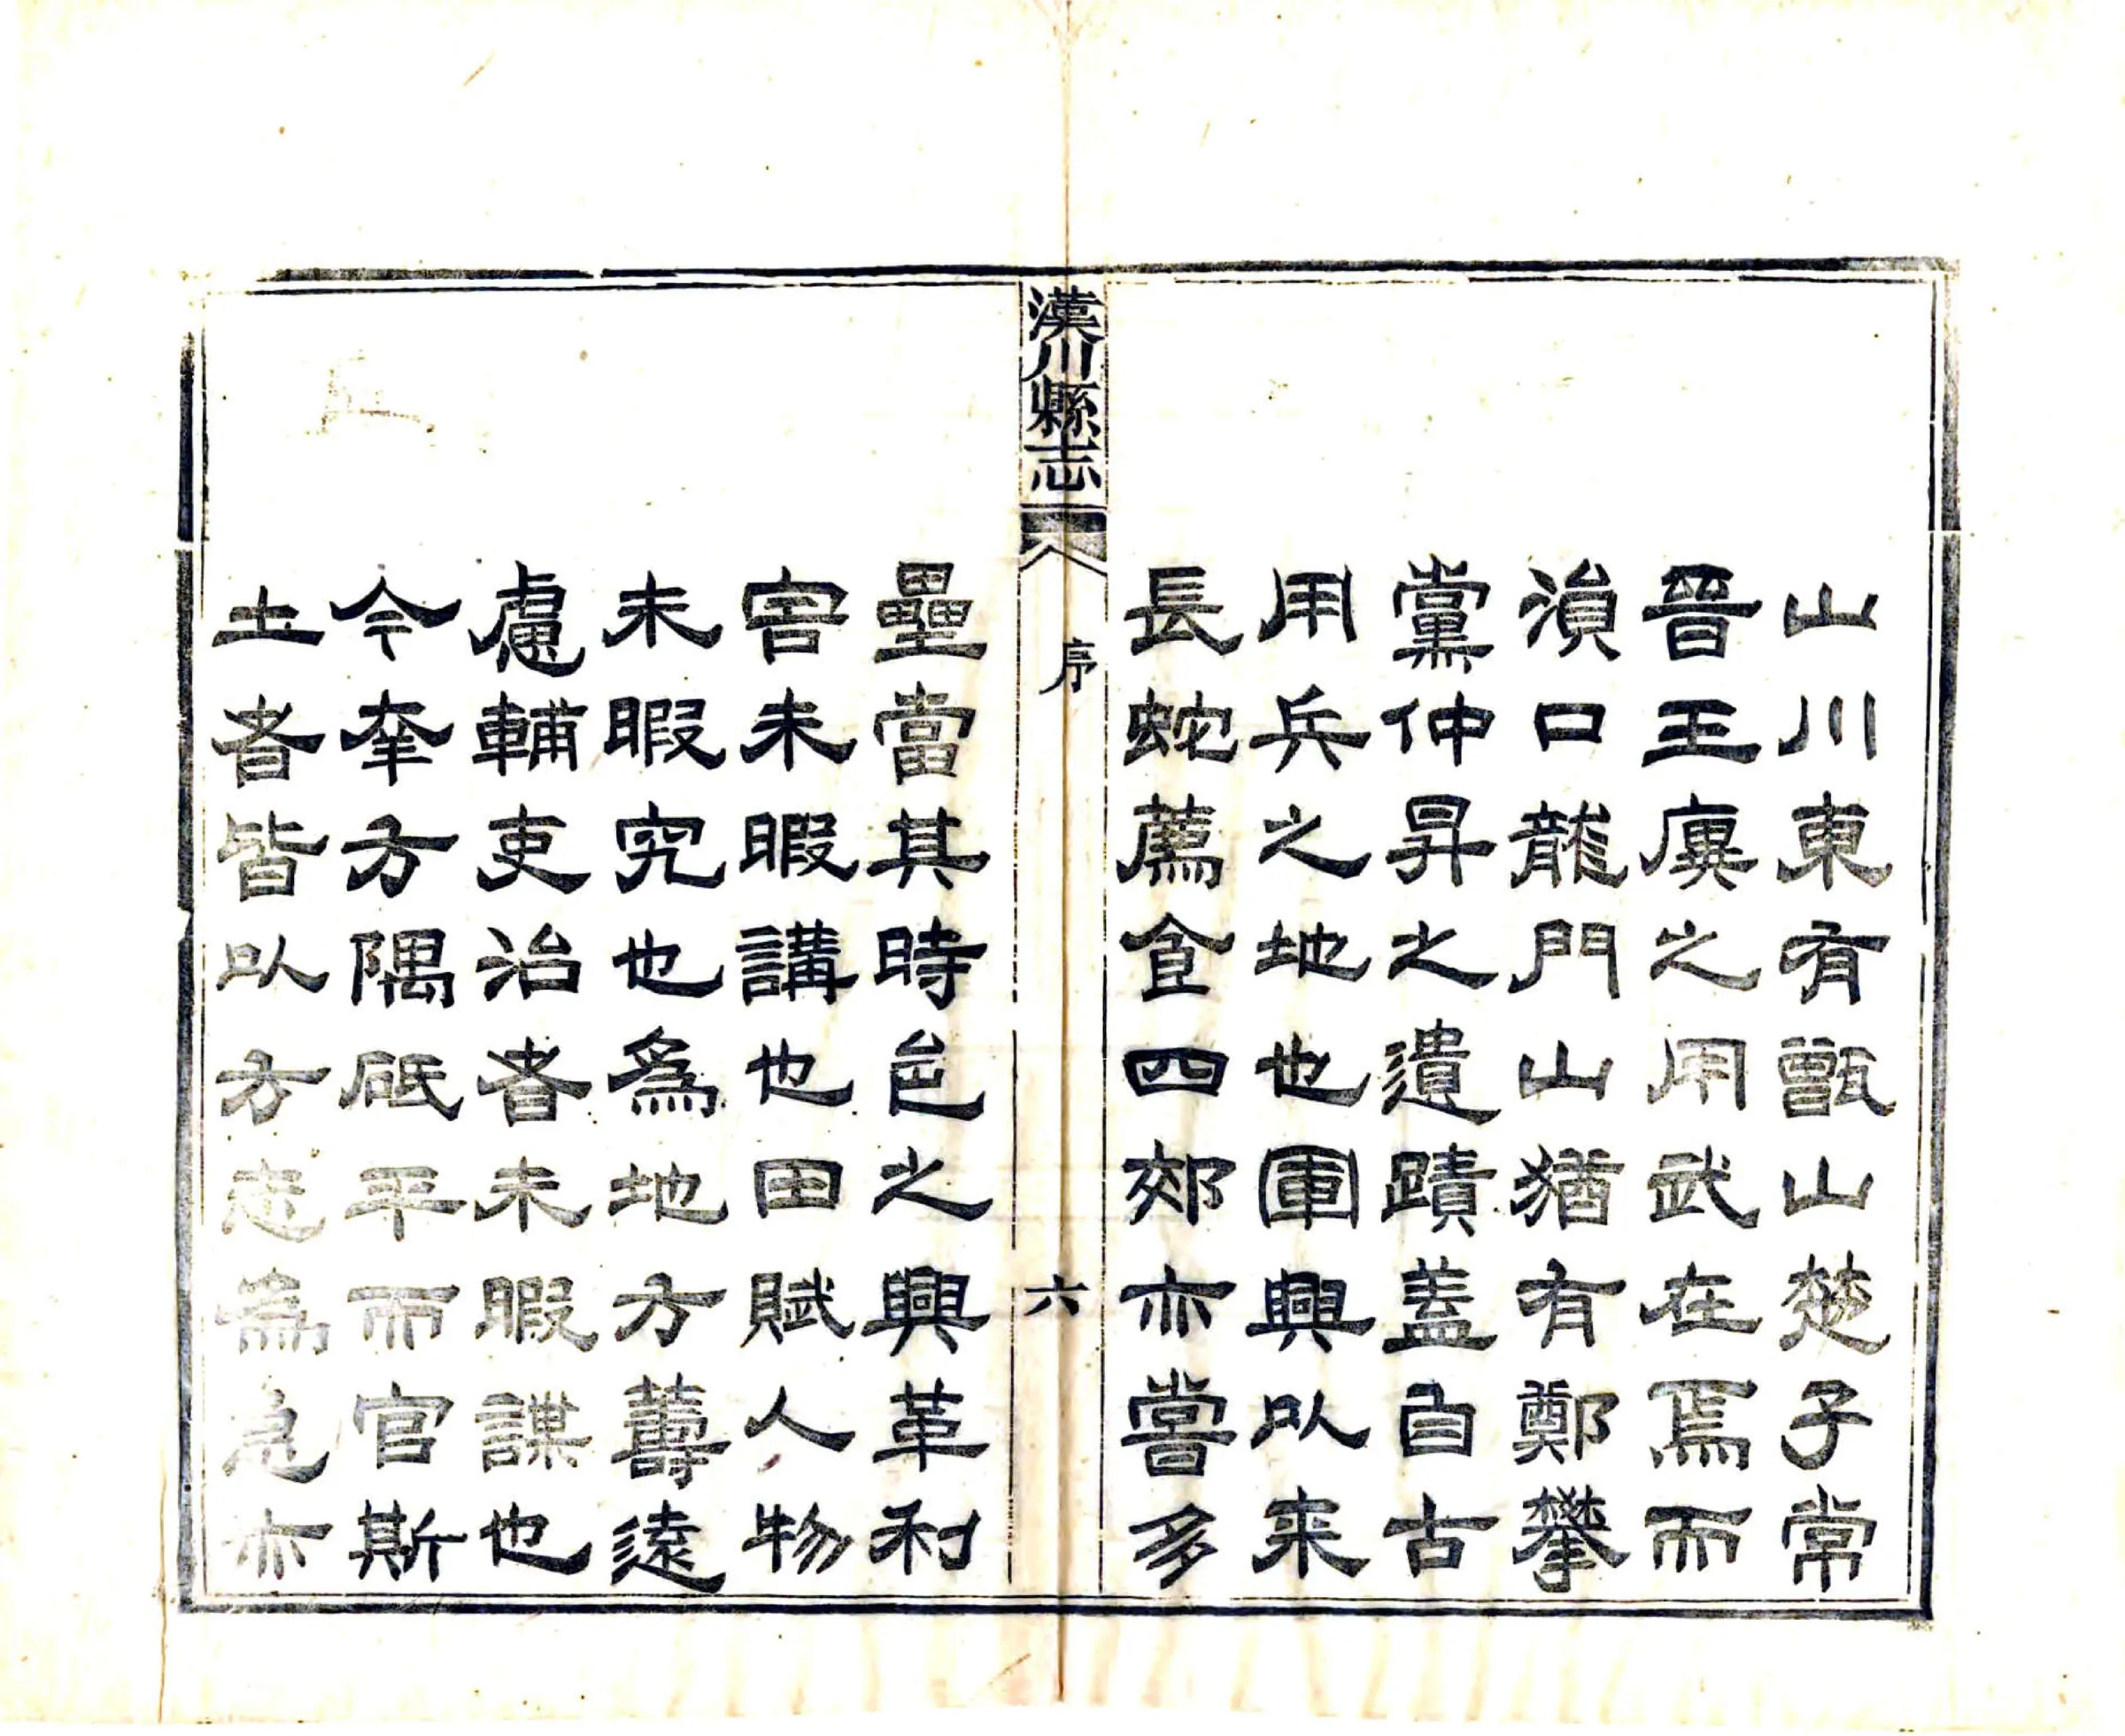 山川東有甑山楚子常
晉王廙之用武在焉而
溳口龍門山猶有鄭攀
黨仲昇之遺蹟蓋自古
用兵之地也軍興以来
長蛇薦食四郊亦嘗多
漢川縣志
序
六
壘當其時邑之興革利
害未暇講也田賦人物
未暇究也為地方籌遠
慮輔吏治者未暇謀也
今奎方隅砥平而官斯
土者皆以方志為急亦